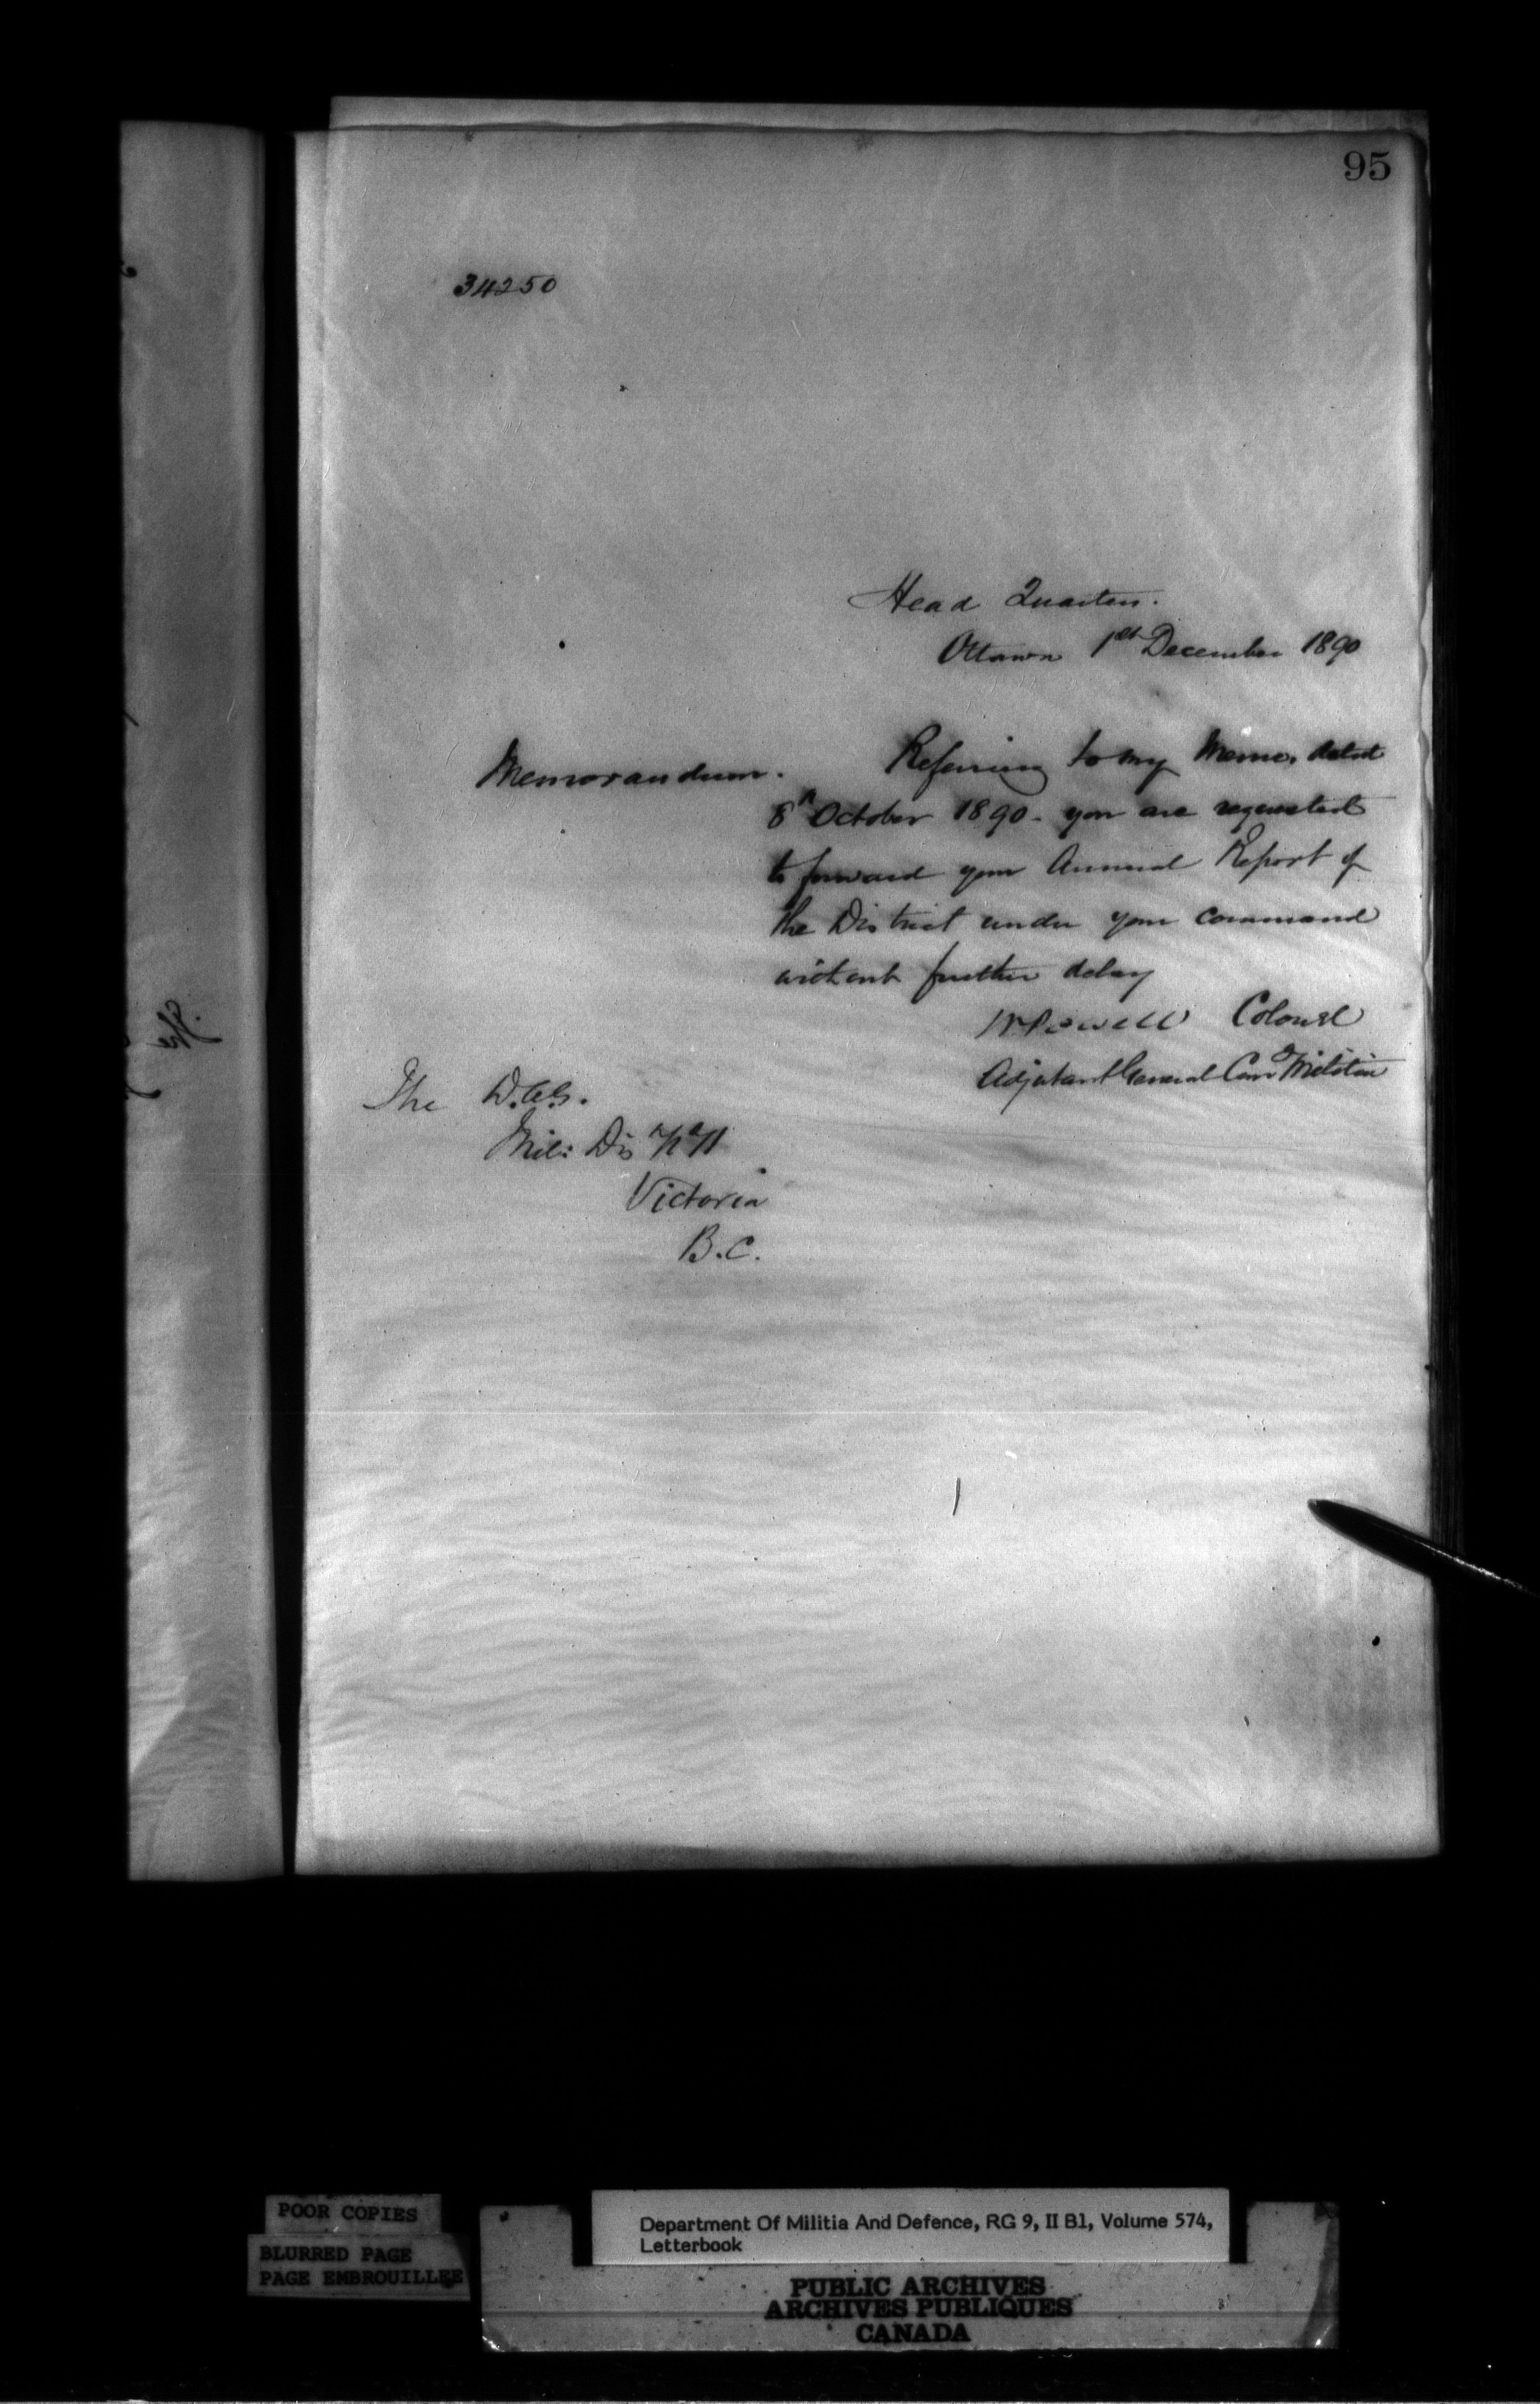 95
34250
Head Quarters.
Ottawa 1st December 1890
Memorandum. Referring to my Memo. dated
8th October 1890 - you are requested
to forward your Annual Report of
the District under your command
without further delay
W Powell Colonel
Adjutant General Can Militia
The D.A.G.
Mil: Dis No 11
Victoria
B.C.
The
POOR COPIES
BLURRED PAGE
PAGE EMBROUILLEE
Department Of Militia And Defence, RG 9, II B1, Volume 574,
Letterbook
PUBLIC ARCHIVES
ARCHIVES PUBLIQUES
CANADA